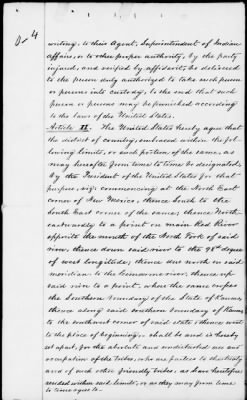 0-4
writing, to their Agent, Superintendent of Indian
affairs, or to other proper authority, by the party
injured, and verified by affidavit, be delivered
to the person duly authorized to take such person
or persons into custody, to the end that such
person or persons may be punished according
to the laws of the United States.
Article II. The United States hereby agree that
the district of country, embraced within the fol-
lowing limits, or such portion of the same, as
may hereafter from time to time be designated,
by the President of the United States for that
purpose, viz: commencing at the North East
corner of New Mexico, thence South to the
South East corner of the same; thence North-
eastwardly to a point on main Red River
opposite the mouth of the North Fork of said
river, thence down said river to the 98th degree
of west longitude; thence due north on said
meridian to the Cimmarone river; thence up
said river to a point, where the same crosses
the Southern boundary of the State of Kansas,
thence along said southern boundary of Kansas
to the southwest corner of said state; thence west
to the place of beginning, shall be and is hereby
set apart, for the absolute and undisturbed use and
occupation of the tribes, who are parties to this treaty
and of such other friendly tribes, as have heretofore
resided within said limits, or as they may from time
to time agree to